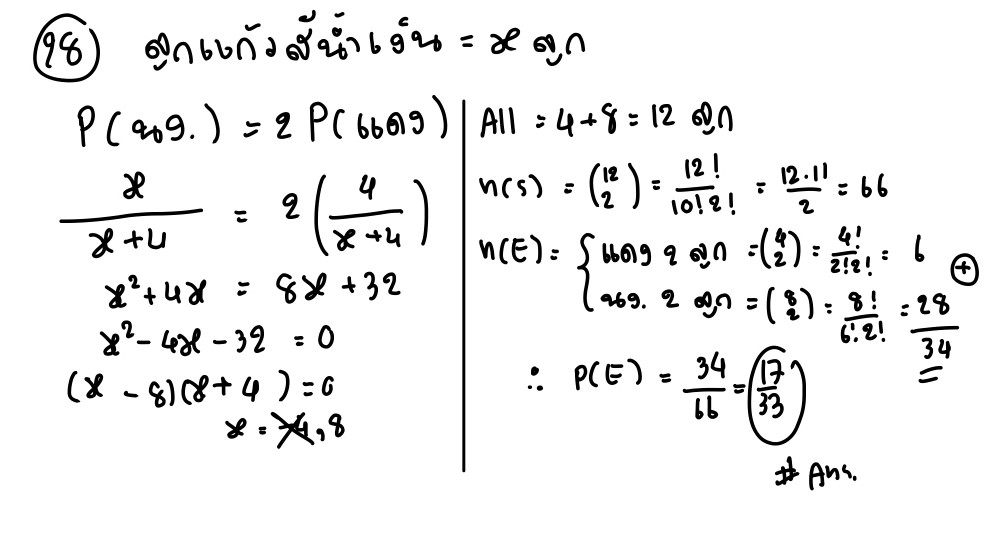 98 ลูกแก้วสีน้ำเงิน = x ลูก
P(นง.) = 2 P(แดง)
x/(x+4) = 2(4/(x+4))
x²+4x = 8x+32
x²-4x-32 = 0
(x-8)(x+4)=0
x = -4,8
All = 4+8 = 12 ลูก
n(s) = (12 2) = 12!/10!2! = 12.11/2 = 66
n(E) = { แดง 2 ลูก = (4 2) = 4!/2!2! = 6
นง. 2 ลูก = (8 2) = 8!/6!2! = 28 +
34
∴ P(E) = 34/66 = 17/33
# Ans.